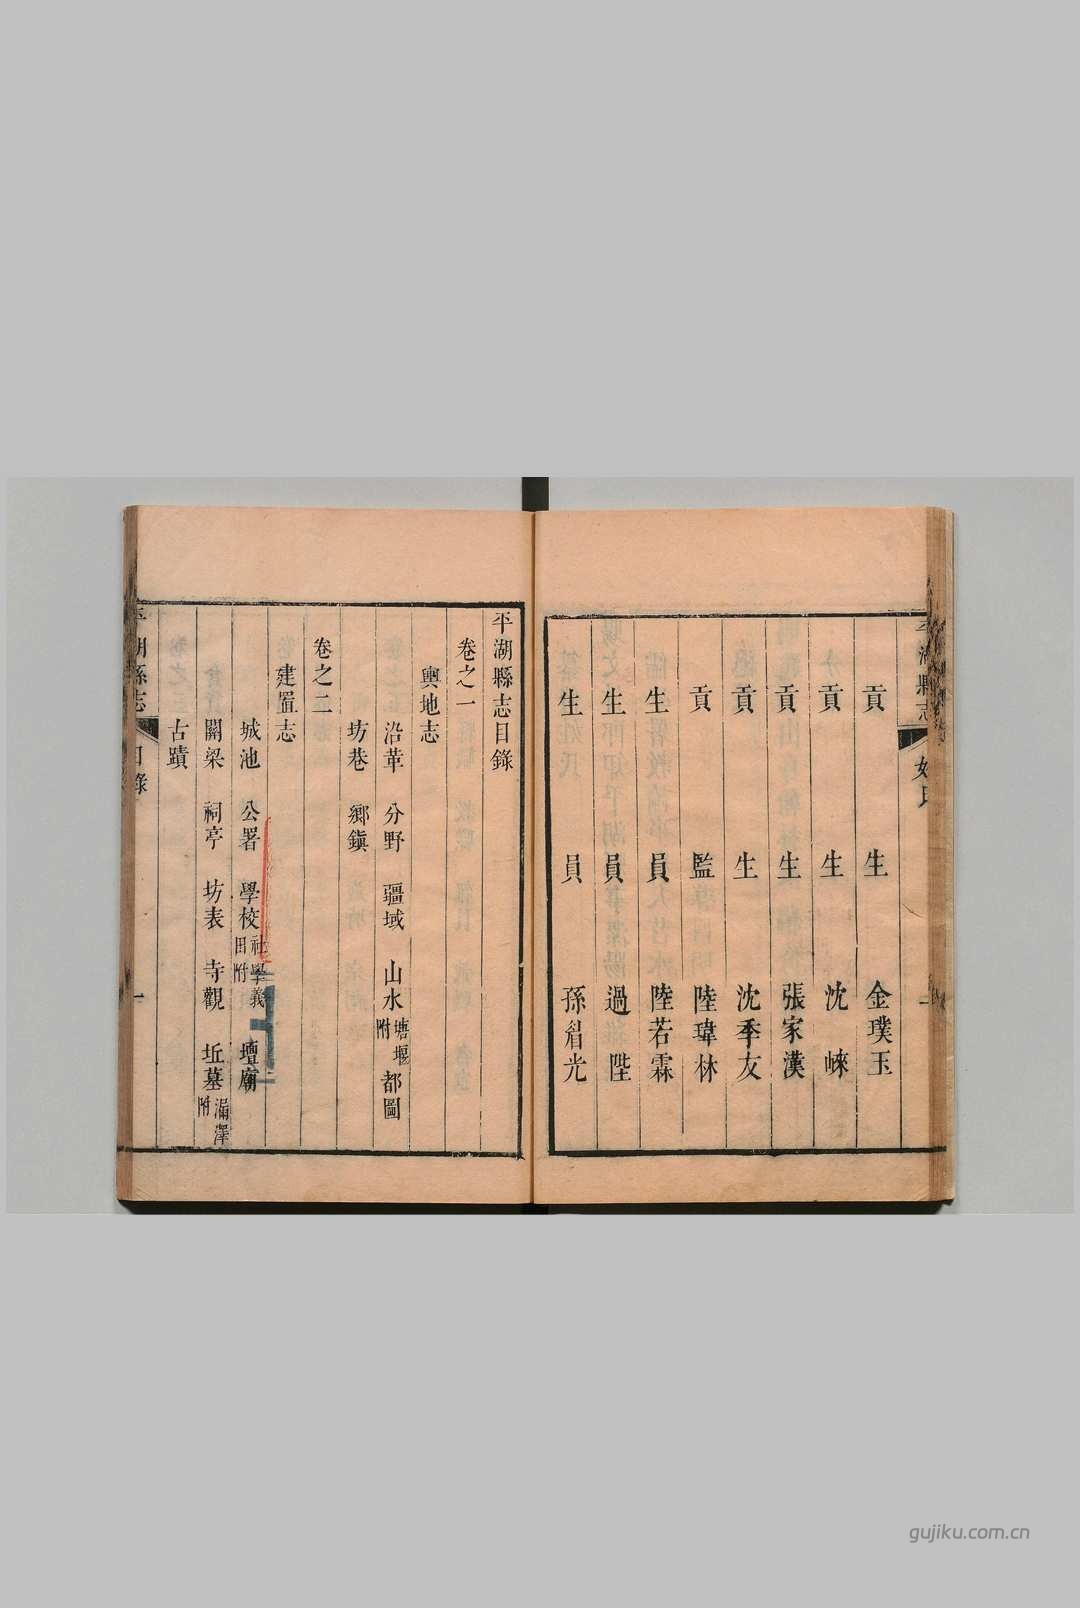 貢　生　金璞玉
貢　生　沈　崍
貢　生　張家漢
貢　生　沈季友
貢　監　陸瑋林
生　員　陸若霖
生　員　過　陛
生　員　孫眉光
平湖縣志目錄
卷之一
輿地志
沿革　分野　疆域　山水塘堰附　都圖
坊巷　鄉鎮
卷之二
建置志
城池　公署　學校社學義田附　壇廟
關梁　祠亭　坊表　寺觀　坵墓漏澤附
古蹟
平湖縣志　目錄　一
gujiku.com.cn